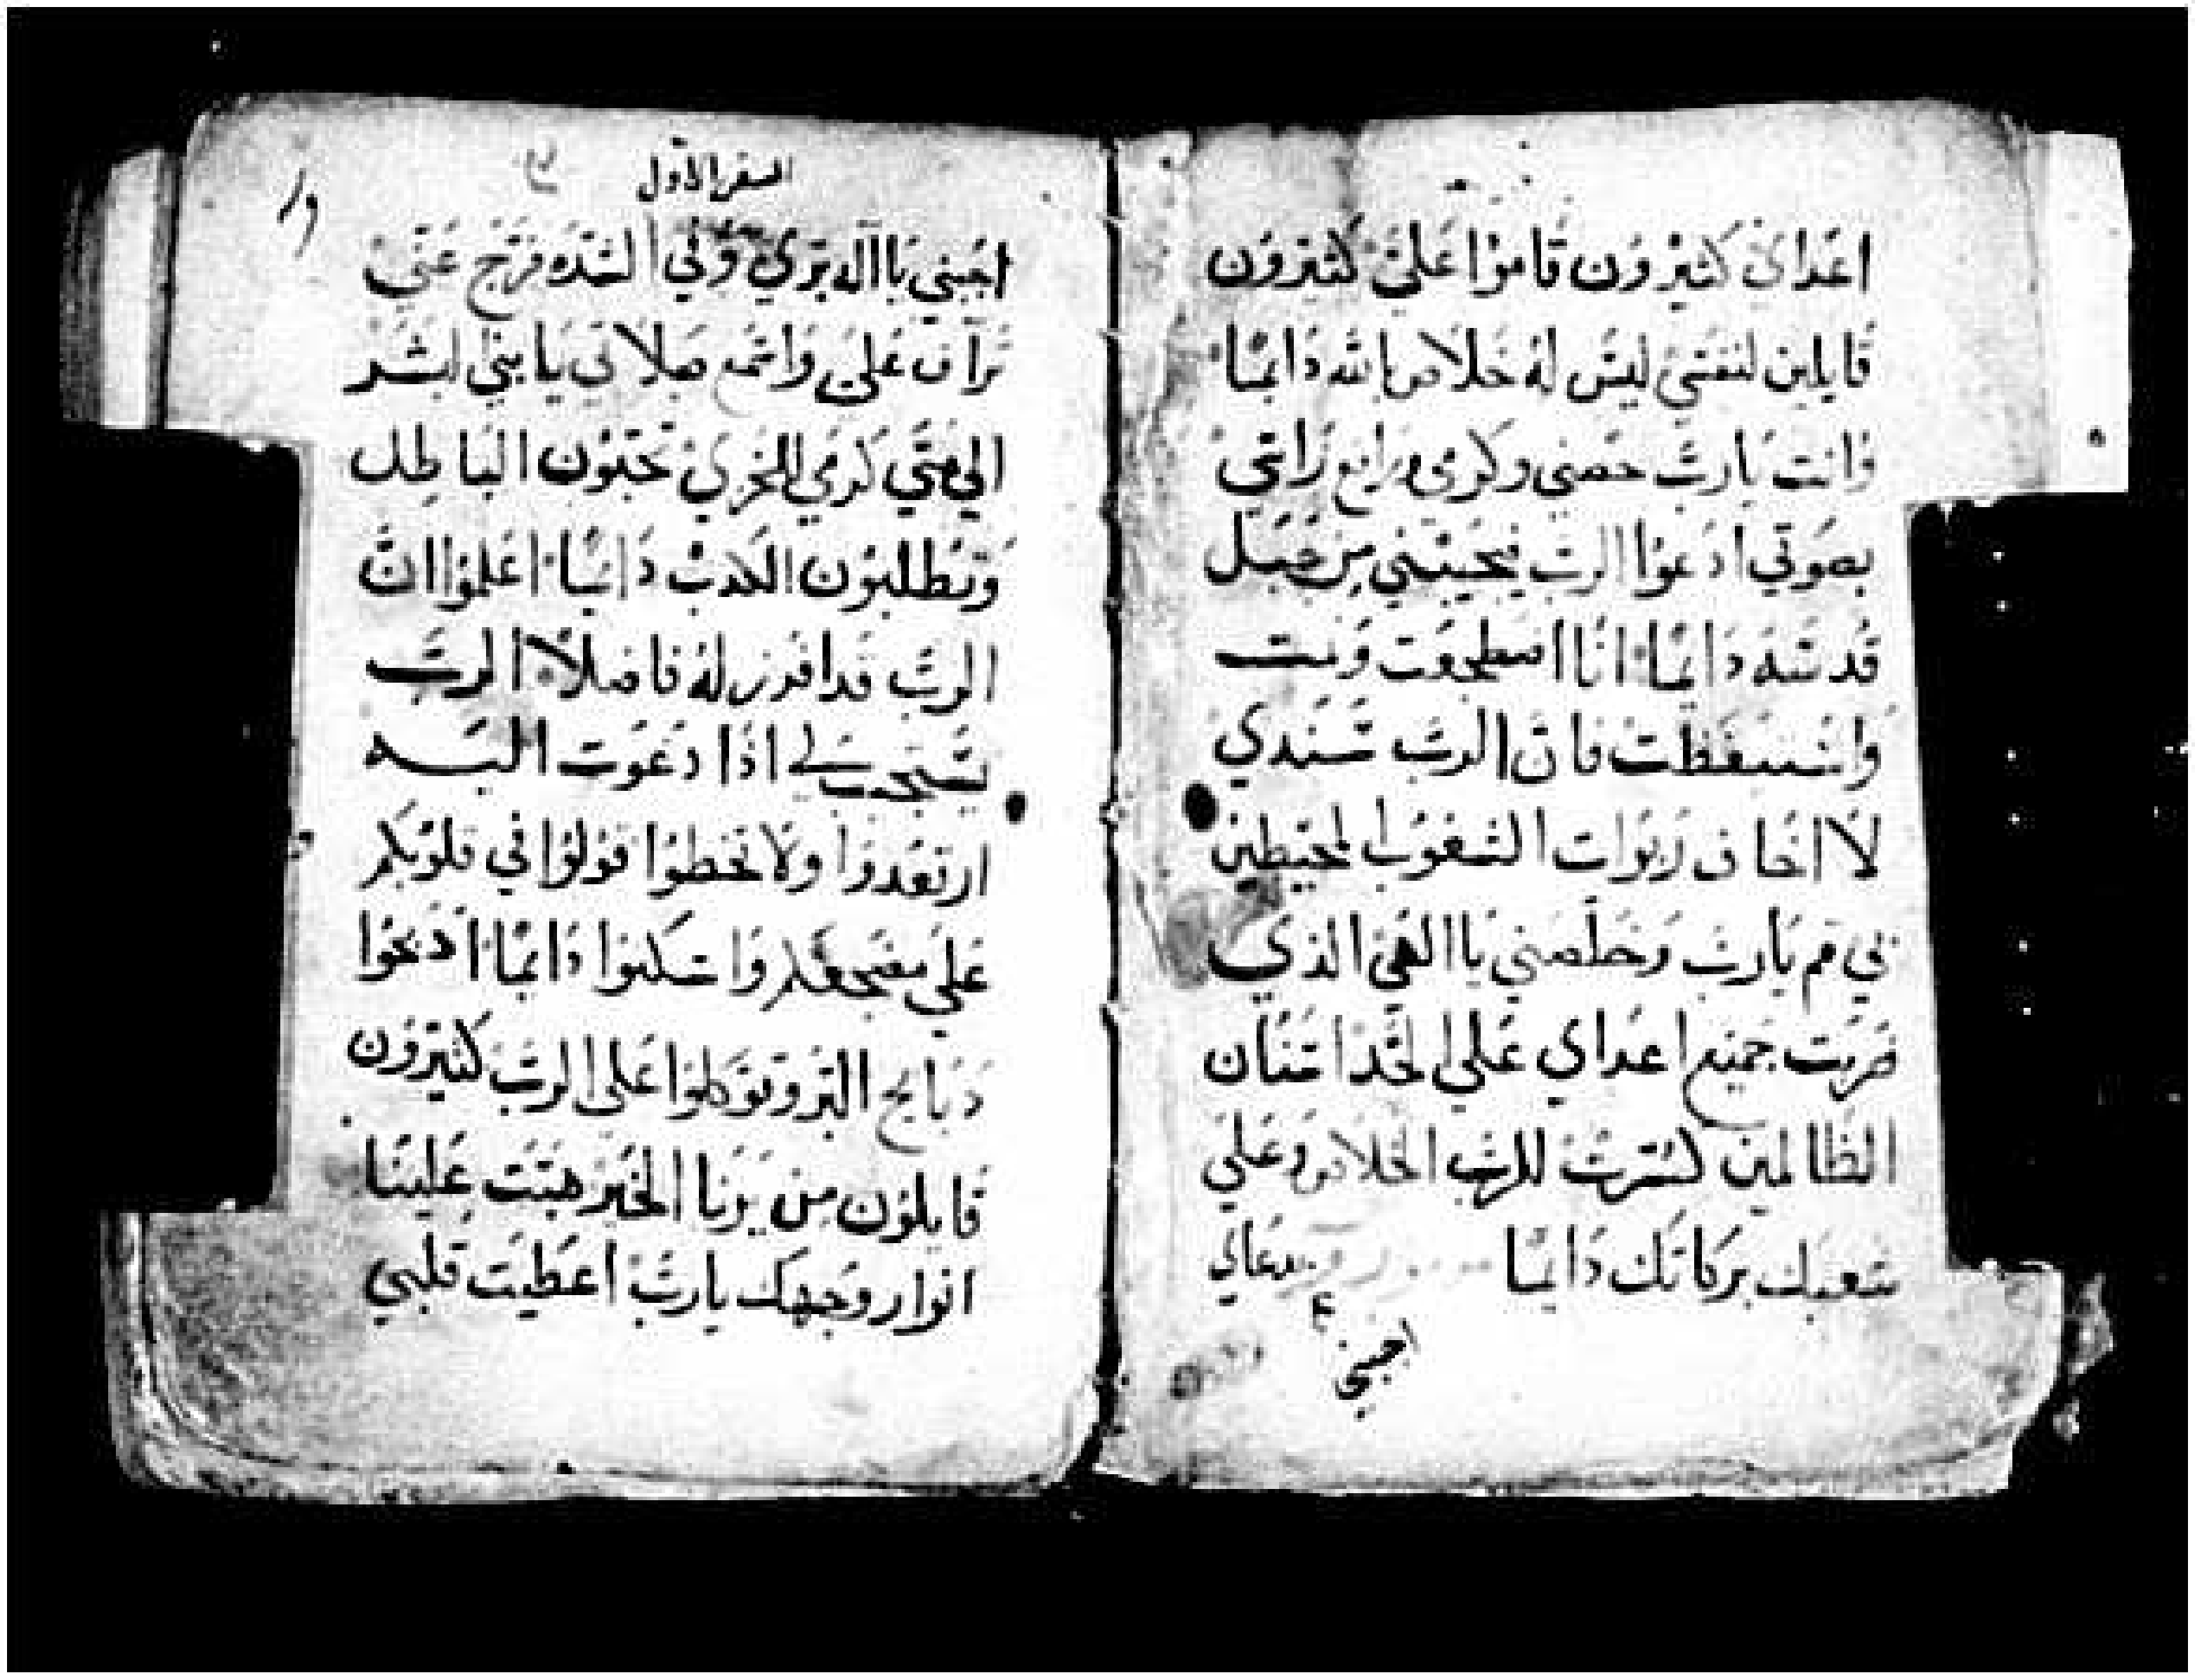 اعداي كثيرون قاموا علي كثيرون
قايلين لنفسي ليس له خلاص بالله دايما
وانت يارب حصني وكرمي ورافع راسي
بصوتي ادعوا الرب فيجيبني من جبل
قدسه دايما انا اضطجعت ونمت
واستيقظت فان الرب سندي
لا اخاف ربوات الشعوب المحيطين
بي قم يارب وخلصني ياالهي الذي
ضربت جميع اعداي علي الخد اسنان
الظالمين كسرت للرب الخلاص وعلي
شعبك بركاتك دايما بدعاي
اجبني
السفر الاول
اجبني ياالاه بري وفي الشده فرج عني
تراف علي واسمع صلاتي يابني البشر
الي متي كرمي للخزي تحبون الباطل
وتطلبون الكدب دايما اعلموا ان
الرب قد افرز له فاضلا الرب
يستجيب لي اذا دعوت اليه
ارتعدوا ولا تخطوا قولوا في قلوبكم
علي مضجعكم واسكنوا دايما ادبحوا
دبايح البر وتوكلوا علي الرب كثيرون
قايلون من يرنا الخير هبت علينا
انوار وجهك يارب اعطيت قلبي